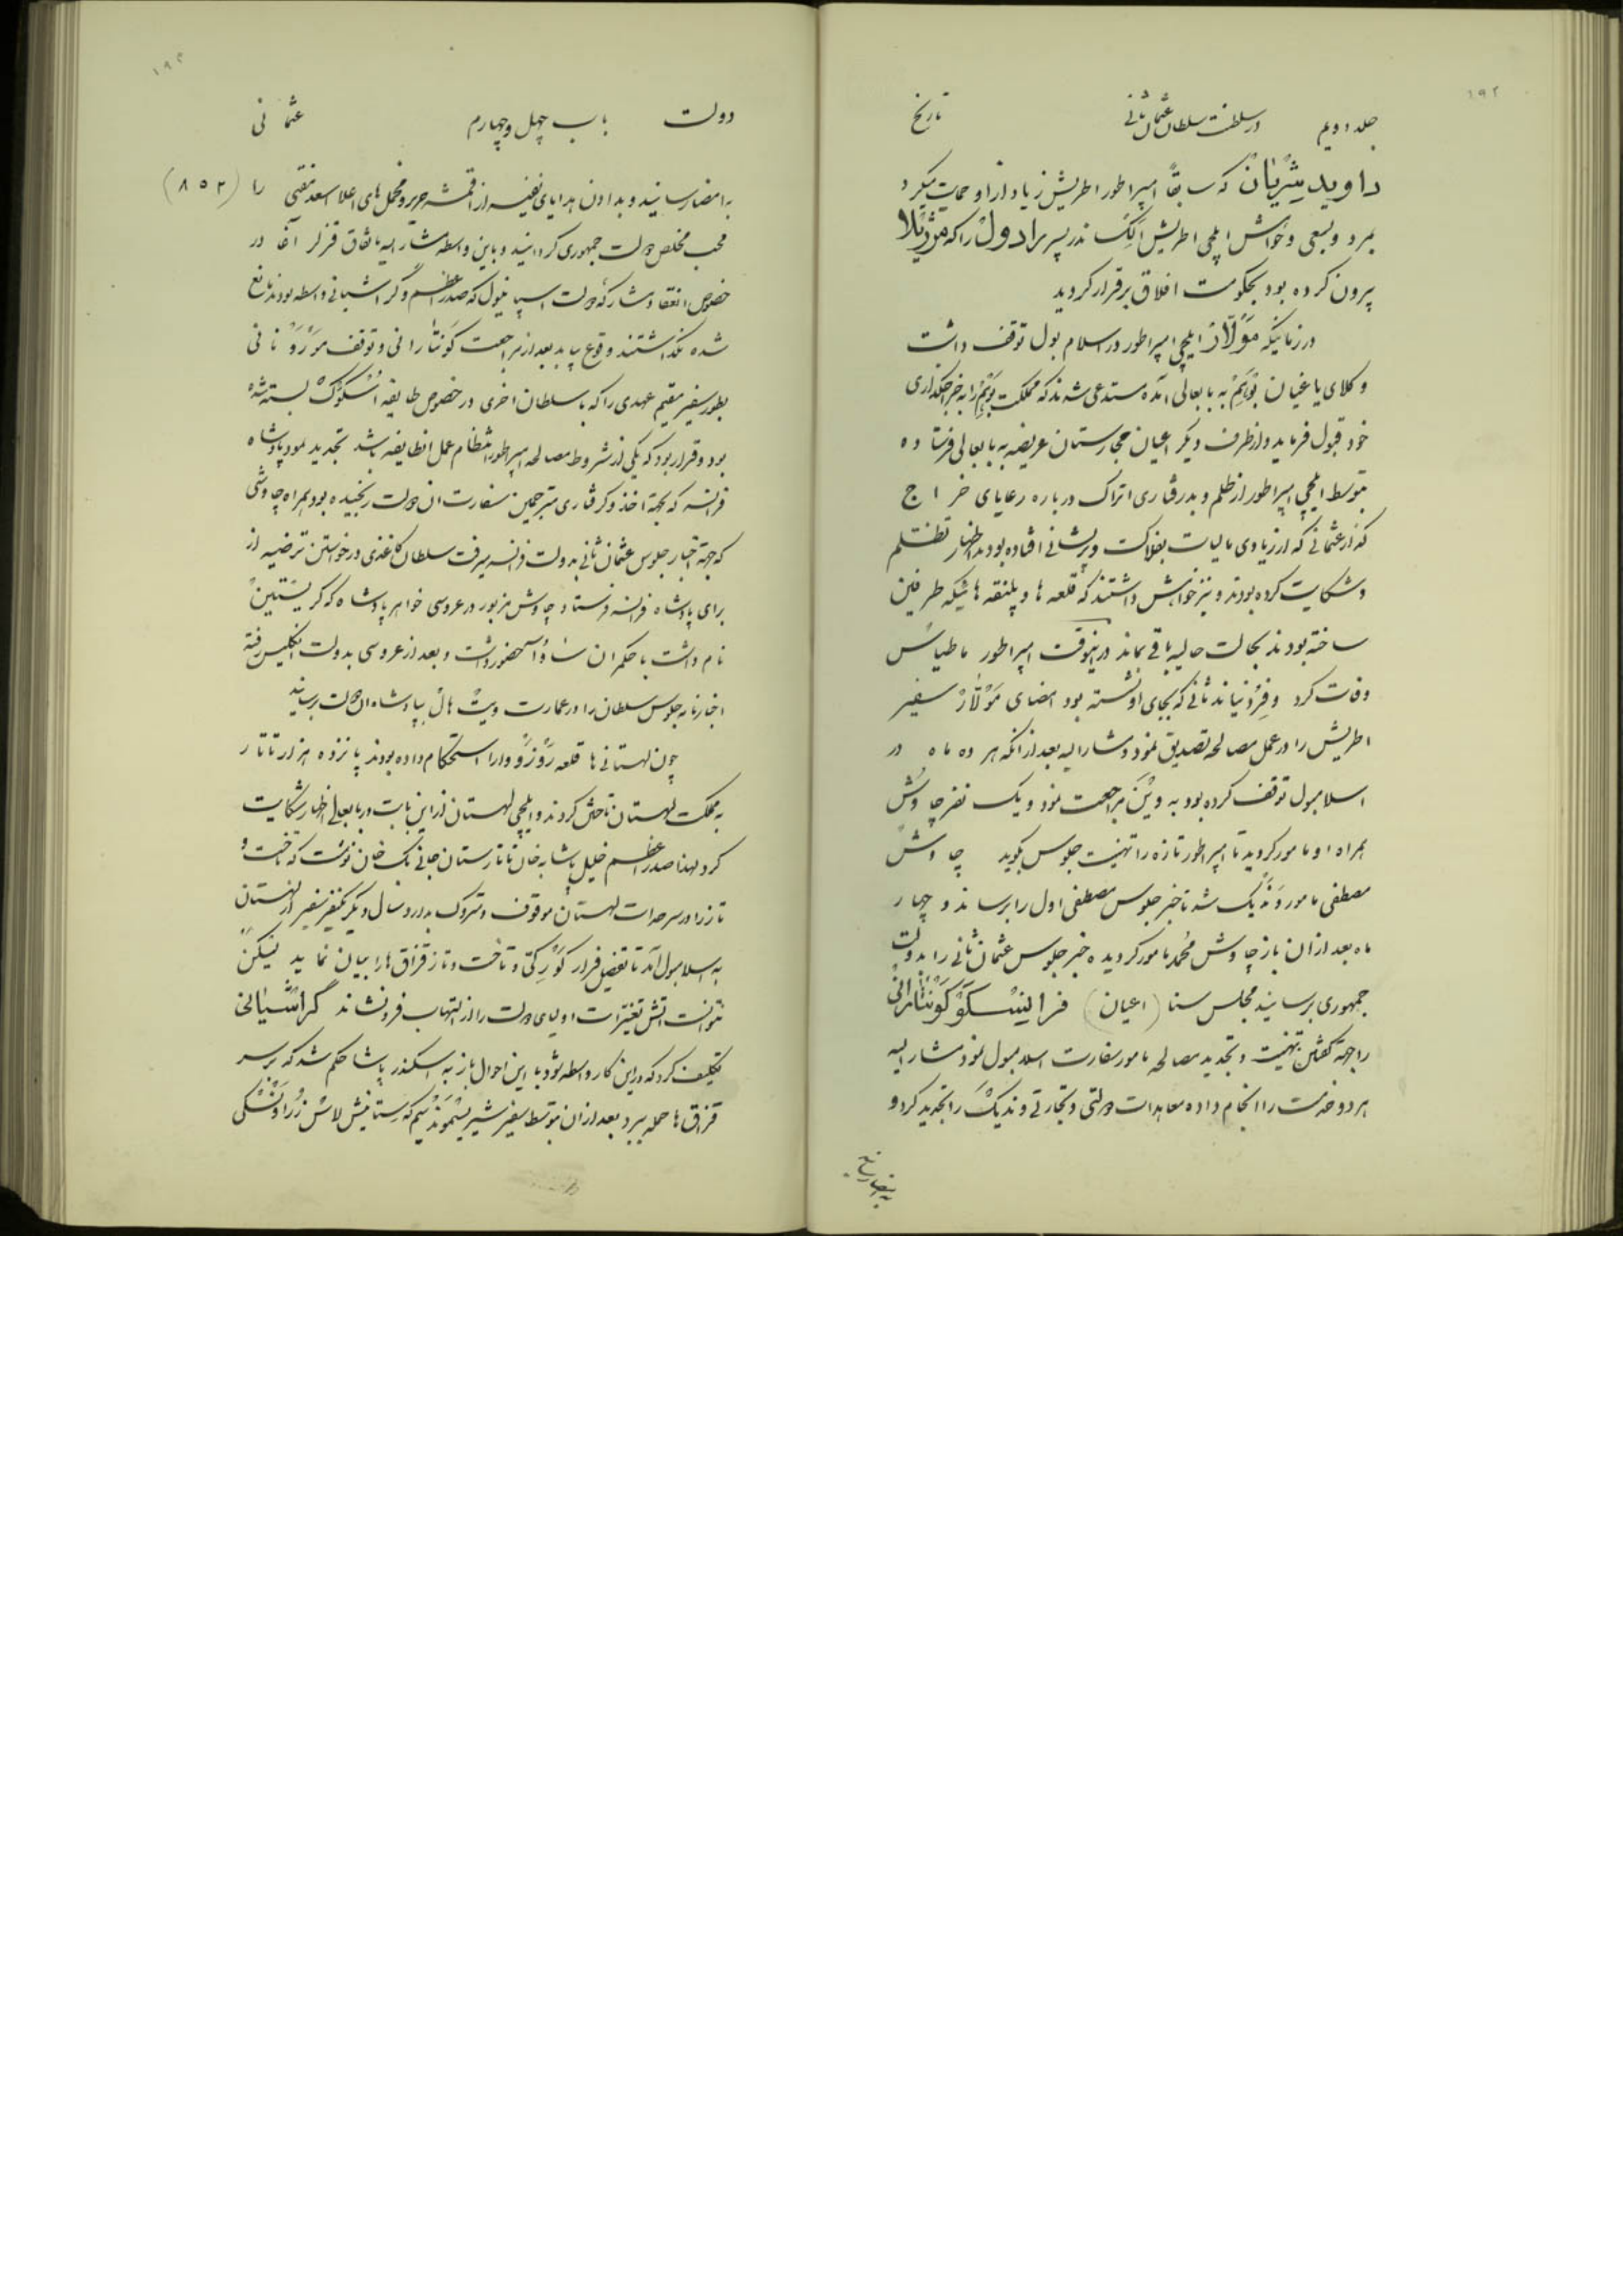 ۱۹۲
جلد دویم در سلطنت سلطان عثمان ثانی تاریخ
داوید پتریان که سابقاً امپراطور اطریش زیاد از او حمایت میکرد
بمرد و بسعی و خواهش ایلچی اطریش الکساندر پسر رادول را که
بیرون کرده بود بحکومت افلاق برقرار کردید
در زمانیکه مولّارد ایلچی امپراطور در اسلامبول توقف داشت
وکلای یاغیان بوهم به بابعالی آمده مستدعی شدند که مملکت بوهم را به خراجگذاری
خود قبول فرماید و از طرف دیگر اعیان مجارستان عریضه به بابعالی فرستاده
بتوسط ایلچی امپراطور از ظلم و بدرفتاری اتراک درباره رعایای خراج
گذار عثمانی که از زیادی مالیات بفلاکت و پریشانی افتاده بودند اظهار تظلم
و شکایت کرده بودند و نیز خواهش داشتند که قلعه ها و پلنقه هائیکه طرفین
ساخته بودند بحالت حالیه باقی بماند در اینوقت امپراطور ماطیاس
وفات کرد و فردیناند ثانی که بجای او نشسته بود امضای مولّارد سفیر
اطریش را در عمل مصالحه تصدیق نمود و مشارالیه بعد از آنکه هر ده ماه در
اسلامبول توقف کرده بود به وین مراجعت نمود و یک نفر چاوش
همراه او مامور کردید تا امپراطور تازه را تهنیت جلوس بگوید چاوش
مصطفی مامور وندیک شد تا خبر جلوس مصطفی اول را برساند و چهار
ماه بعد از آن باز چاوش محمد مامور کردیده خبر جلوس عثمان ثانی را بدولت
جمهوری برسانید مجلس سنا (اعیان) فرانیسکو کونتارانی
را جهة گفتن تهنیت و تجدید مصالحه مامور سفارت اسلامبول نمود مشارالیه
هر دو خدمت را انجام داده معاهدات دولتی و تجارتی وندیک را تجدید کرد و
به امضا رسانید
۱۹۳
دولت باب چهل و چهارم عثمانی
به امضا رسانید و بدادن هدایای نفیسه از اقمشه حریر و مخمل های اعلا اسعد مفتی را (۸۵۳)
محب مخلص دولت جمهوری کردانید و باین واسطه مشارالیه باتفاق قزلر آغا در
خصوص انعقاد مشارکه دولت اسپانیول که صدر اعظم و گراشیانی واسطه بودند مانع
شده نکذاشتند وقوع بیابد بعد از مراجعت کونتارانی و توقف موزو نانی
بطور سفیر مقیم عهدی را که با سلطان اخری در خصوص طایفه اسکوک بسته شده
بود و قرار بود که یکی از شروط مصالحه امپراطور انتظام عمل انطایفه باشد تجدید نمود پادشاه
فرانسه که بجهة اخذ و گرفتاری مترجمین سفارت ان دولت رنجیده بود همراه چاوشی
که جهة اخبار جلوس عثمان ثانی بدولت فرانسه میرفت سلطان کاغذی در خواستن ترضیه از
برای پادشاه فرانسه فرستاد چاوش مزبور در عروسی خواهر پادشاه که کریستین
نام داشت با حکمران ساوا حضور داشت و بعد از عروسی بدولت انگلیس رفته
اخبارنامه جلوس سلطان را در عمارت ویت هال بپادشاه ان دولت برسانید
چون لهستانی ها قلعه را استحکام داده بودند پانزده هزار تاتار
به مملکت لهستان تاختن کردند و ایلچی لهستان از این بابت در بابعالی اظهار شکایت
کرد لهذا صدر اعظم خلیل پاشا به خان تاتارستان جانی بک خان نوشت که تاخت و
تاز را در سرحدات لهستان موقوف و متروک بدارد و سال دیگر یکنفر سفیر از لهستان
به اسلامبول آمد تا تفصیل فرار کورکی و تاخت و تاز قزاق ها را بیان نماید لیکن
نتوانست آتش تغیرات اولیای دولت را از التهاب فرونشاند گراشیانی
تکلیف کرد که در این کار واسطه شود با این احوال باز به اسکندر پاشا حکم شد که بر سر
قزاق ها حمله ببرد بعد از ان بتوسط سفیر شیر